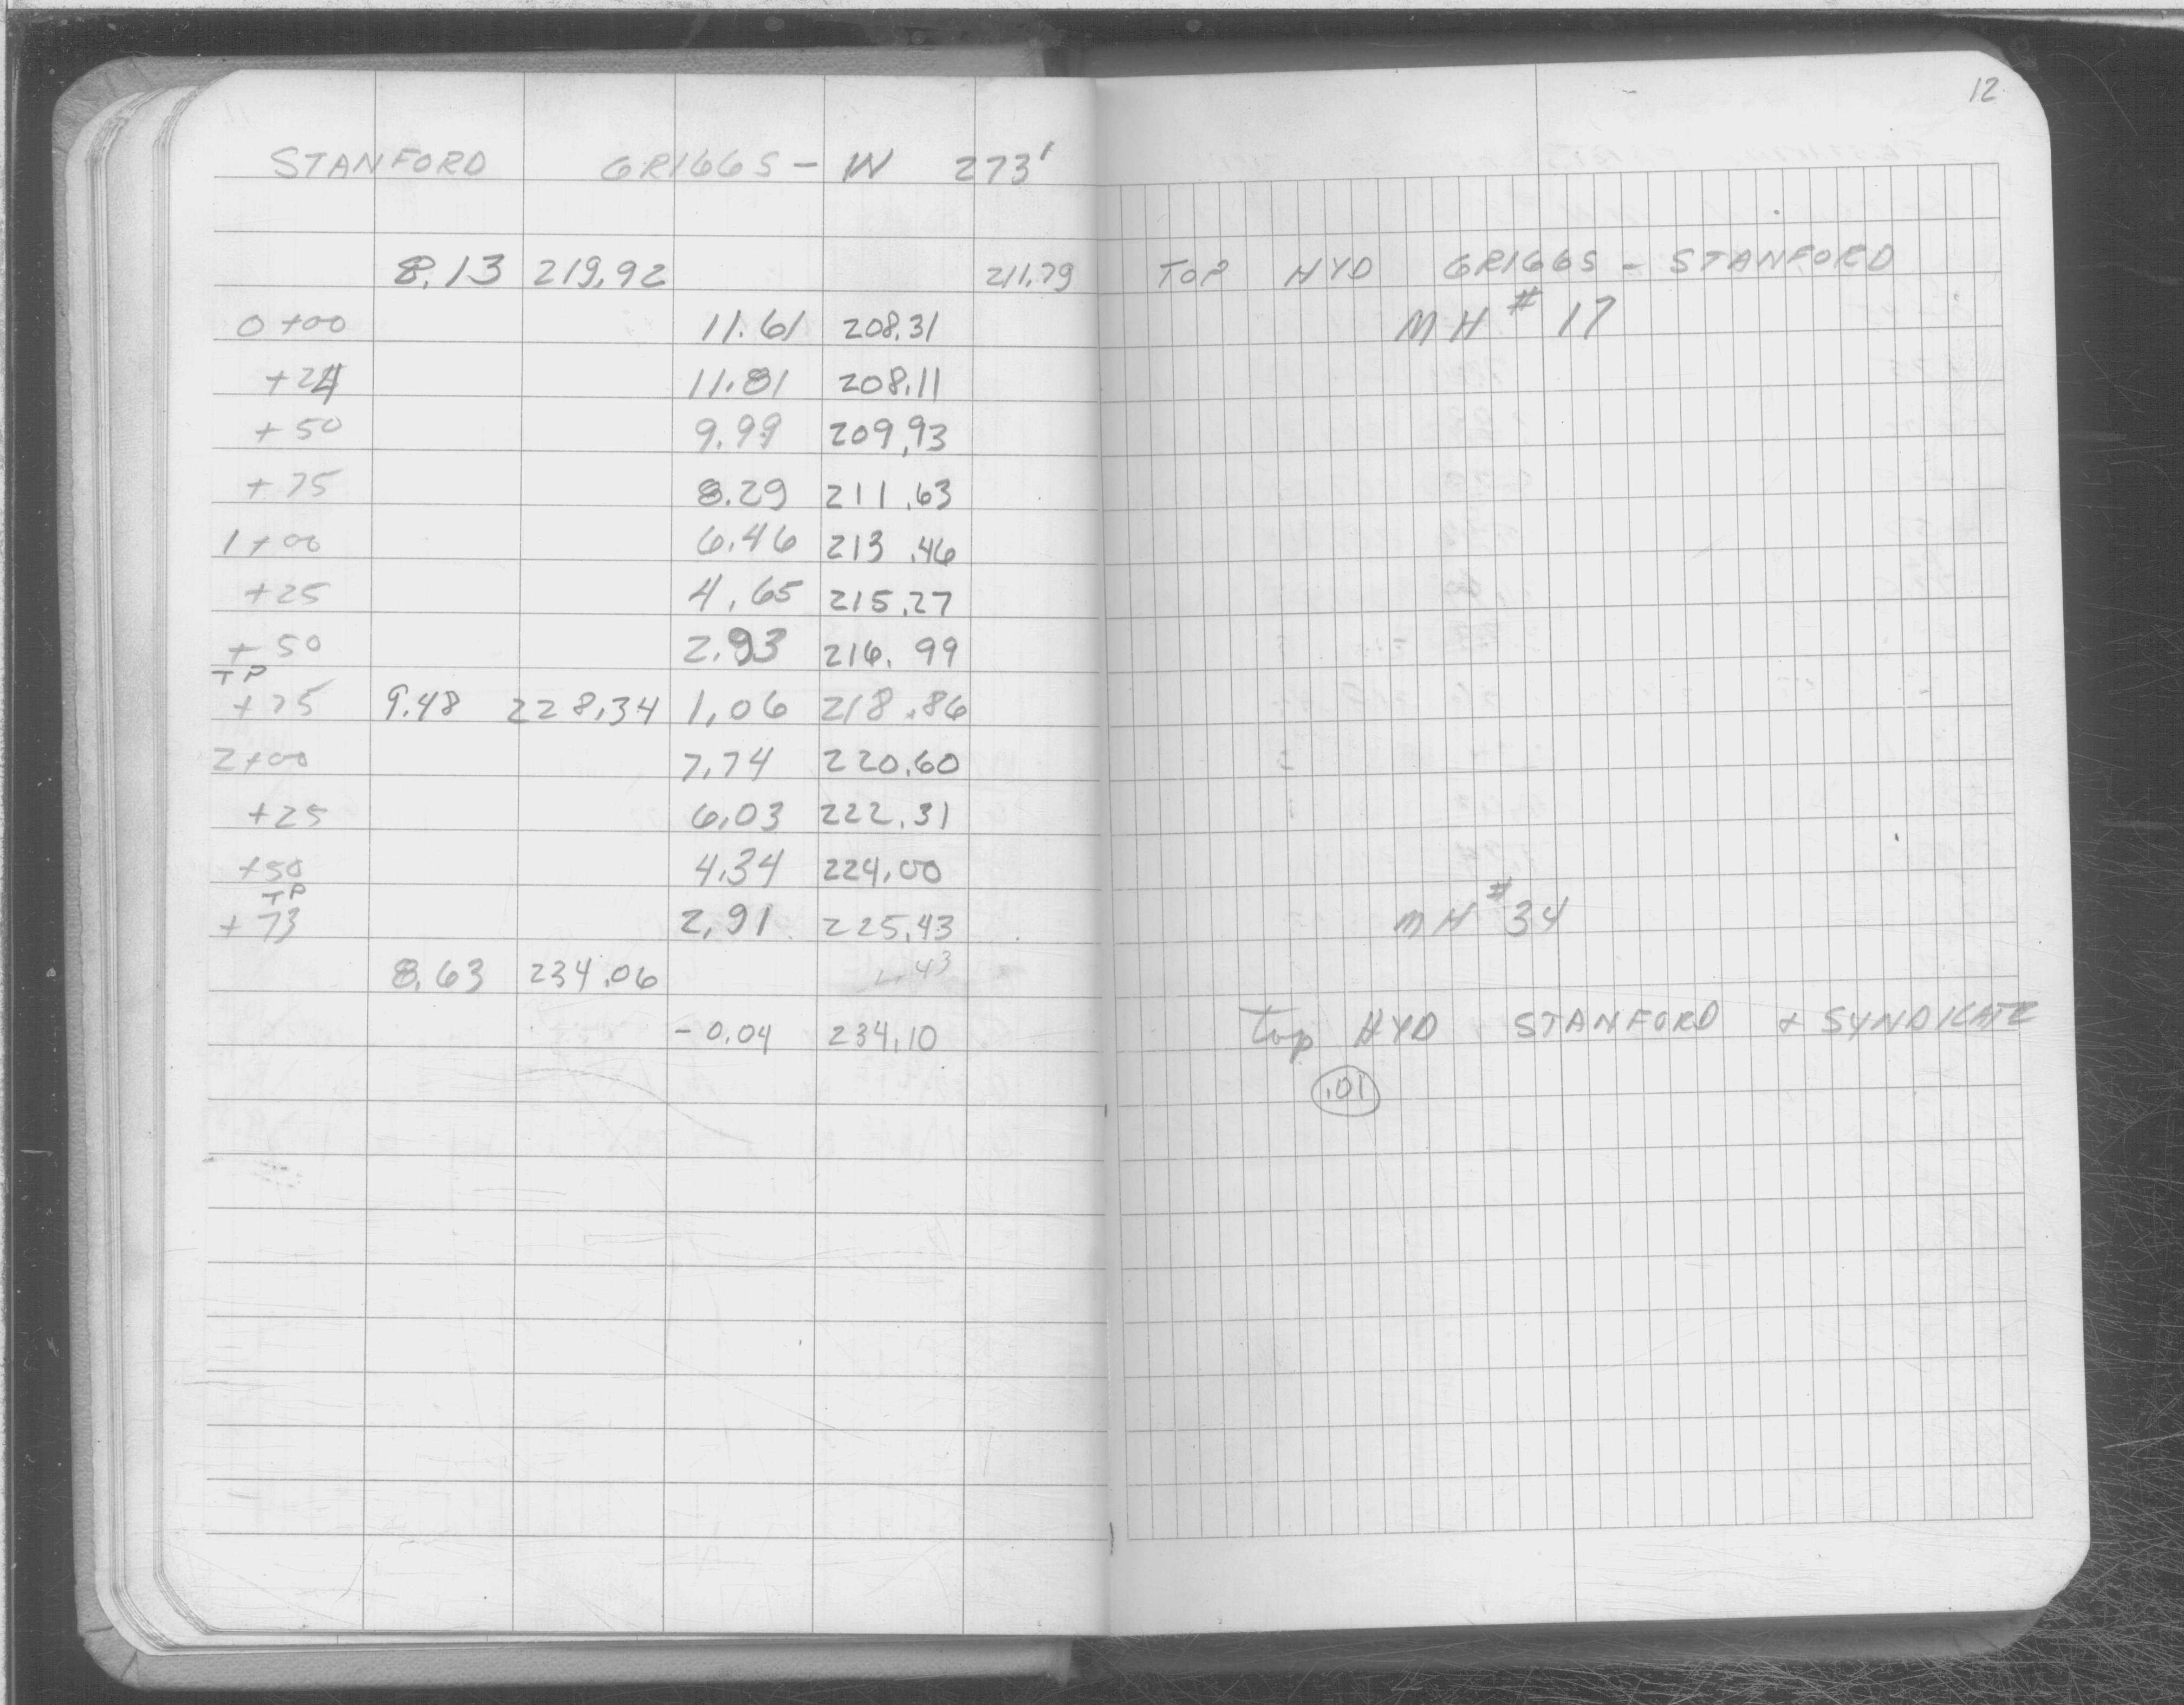 12
STANFORD GRIGGS - IN 273'
8.13 219.92 211.79 TOP HYD GRIGGS - STANFORD
0+00 11.61 208.31 MH # 17
+24 11.81 208.11
+50 9.99 209.93
+75 8.29 211.63
1+00 6.46 213.46
+25 4.65 215.27
+50 2.93 216.99
TP
+75 9.48 228.34 1.06 218.86
2+00 7.74 220.60
+25 6.03 222.31
+50 4.34 224.00
TP
+73 2.91 225.43 MH # 34
8.63 234.06
-0.04 234.10 Top HYD STANFORD + SYNDICATE
.01